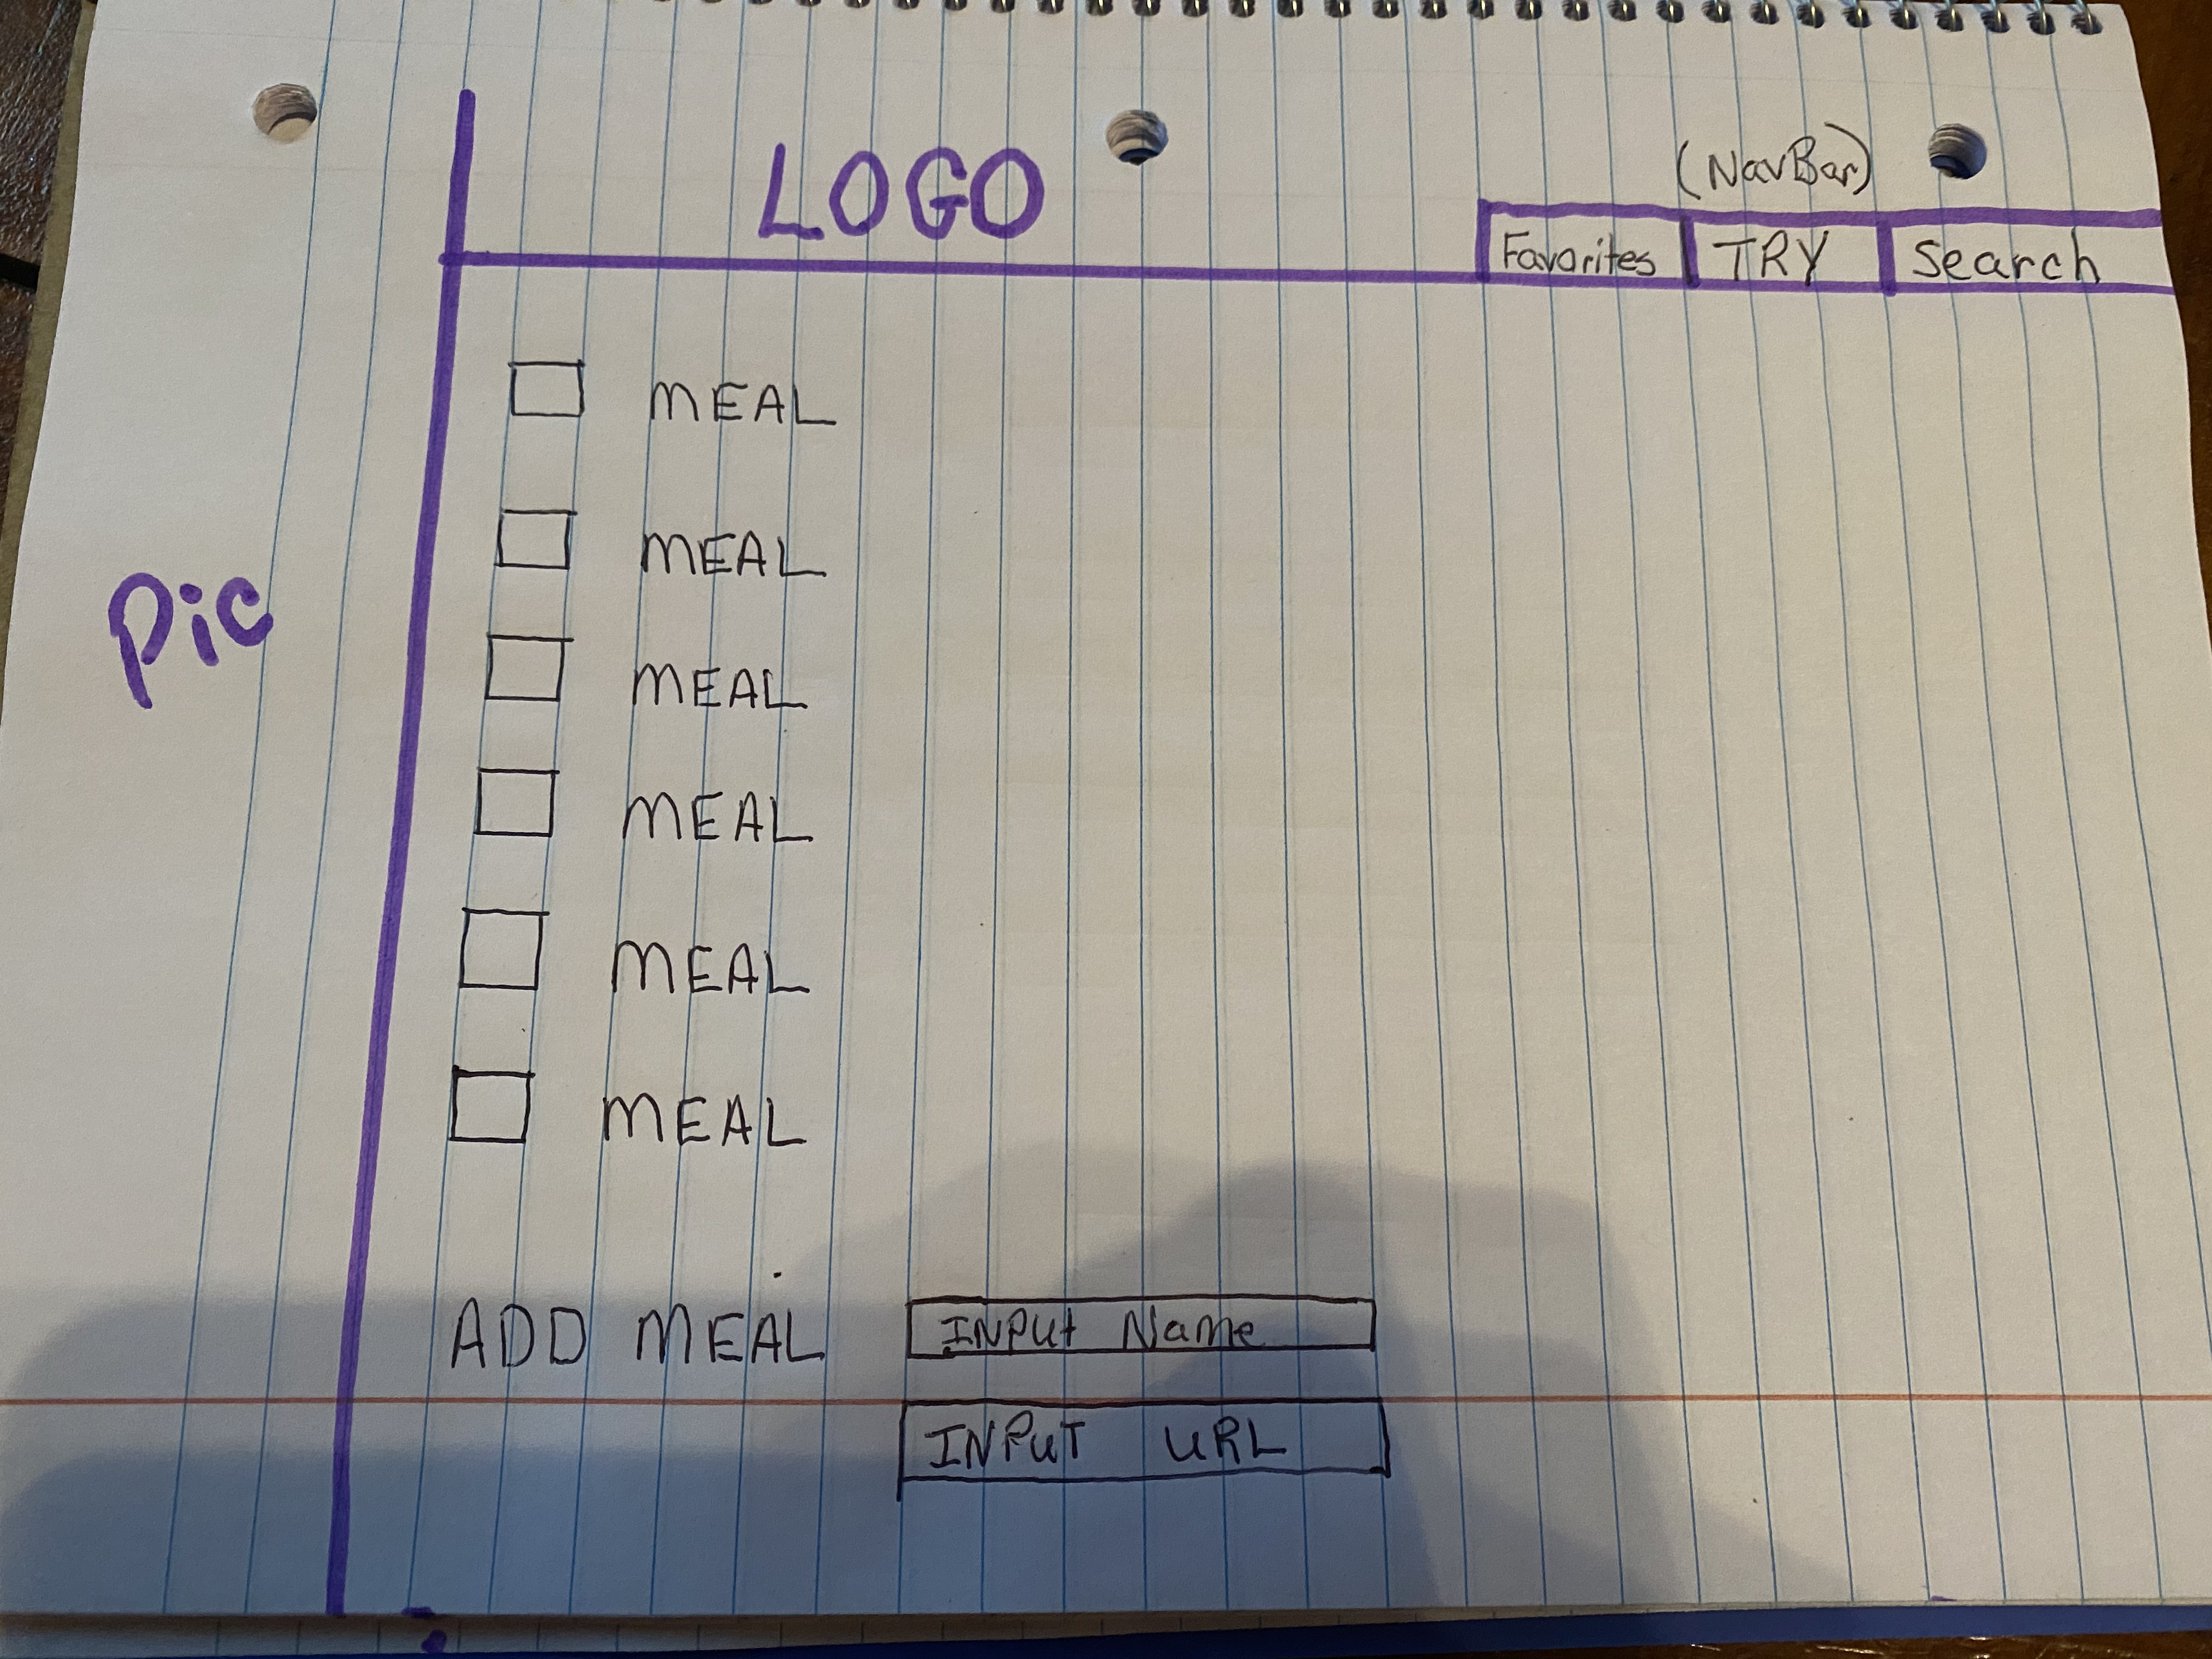 Pic
LOGO
(NavBar)
Favorites TRY Search
MEAL
MEAL
MEAL
MEAL
MEAL
MEAL
ADD MEAL
INPut Name
INPuT uRL